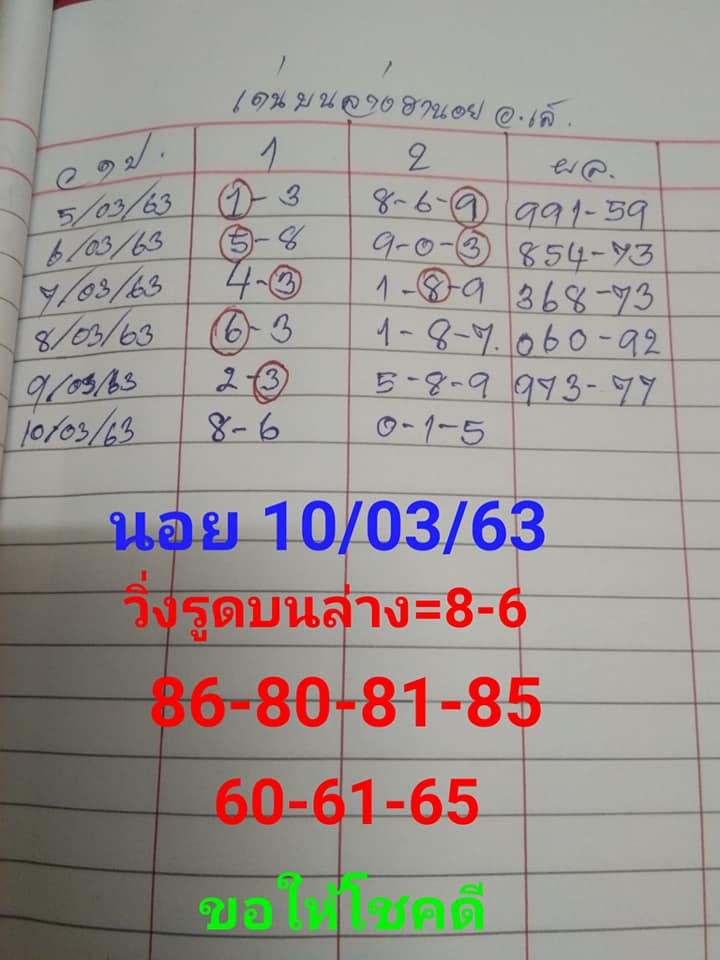 เด่นบนล่างฮานอย อ.เล้.
ว ด ป. 1 2 ผล.
5/03/63 1-3 8-6-9 991-59
6/03/63 5-8 9-0-3 854-73
7/03/63 4-3 1-8-9 368-73
8/03/63 6-3 1-8-7. 060-92
9/03/63 2-3 5-8-9 973-77
10/03/63 8-6 0-1-5
นอย 10/03/63
วิ่งรูดบนล่าง=8-6
86-80-81-85
60-61-65
ขอให้โชคดี